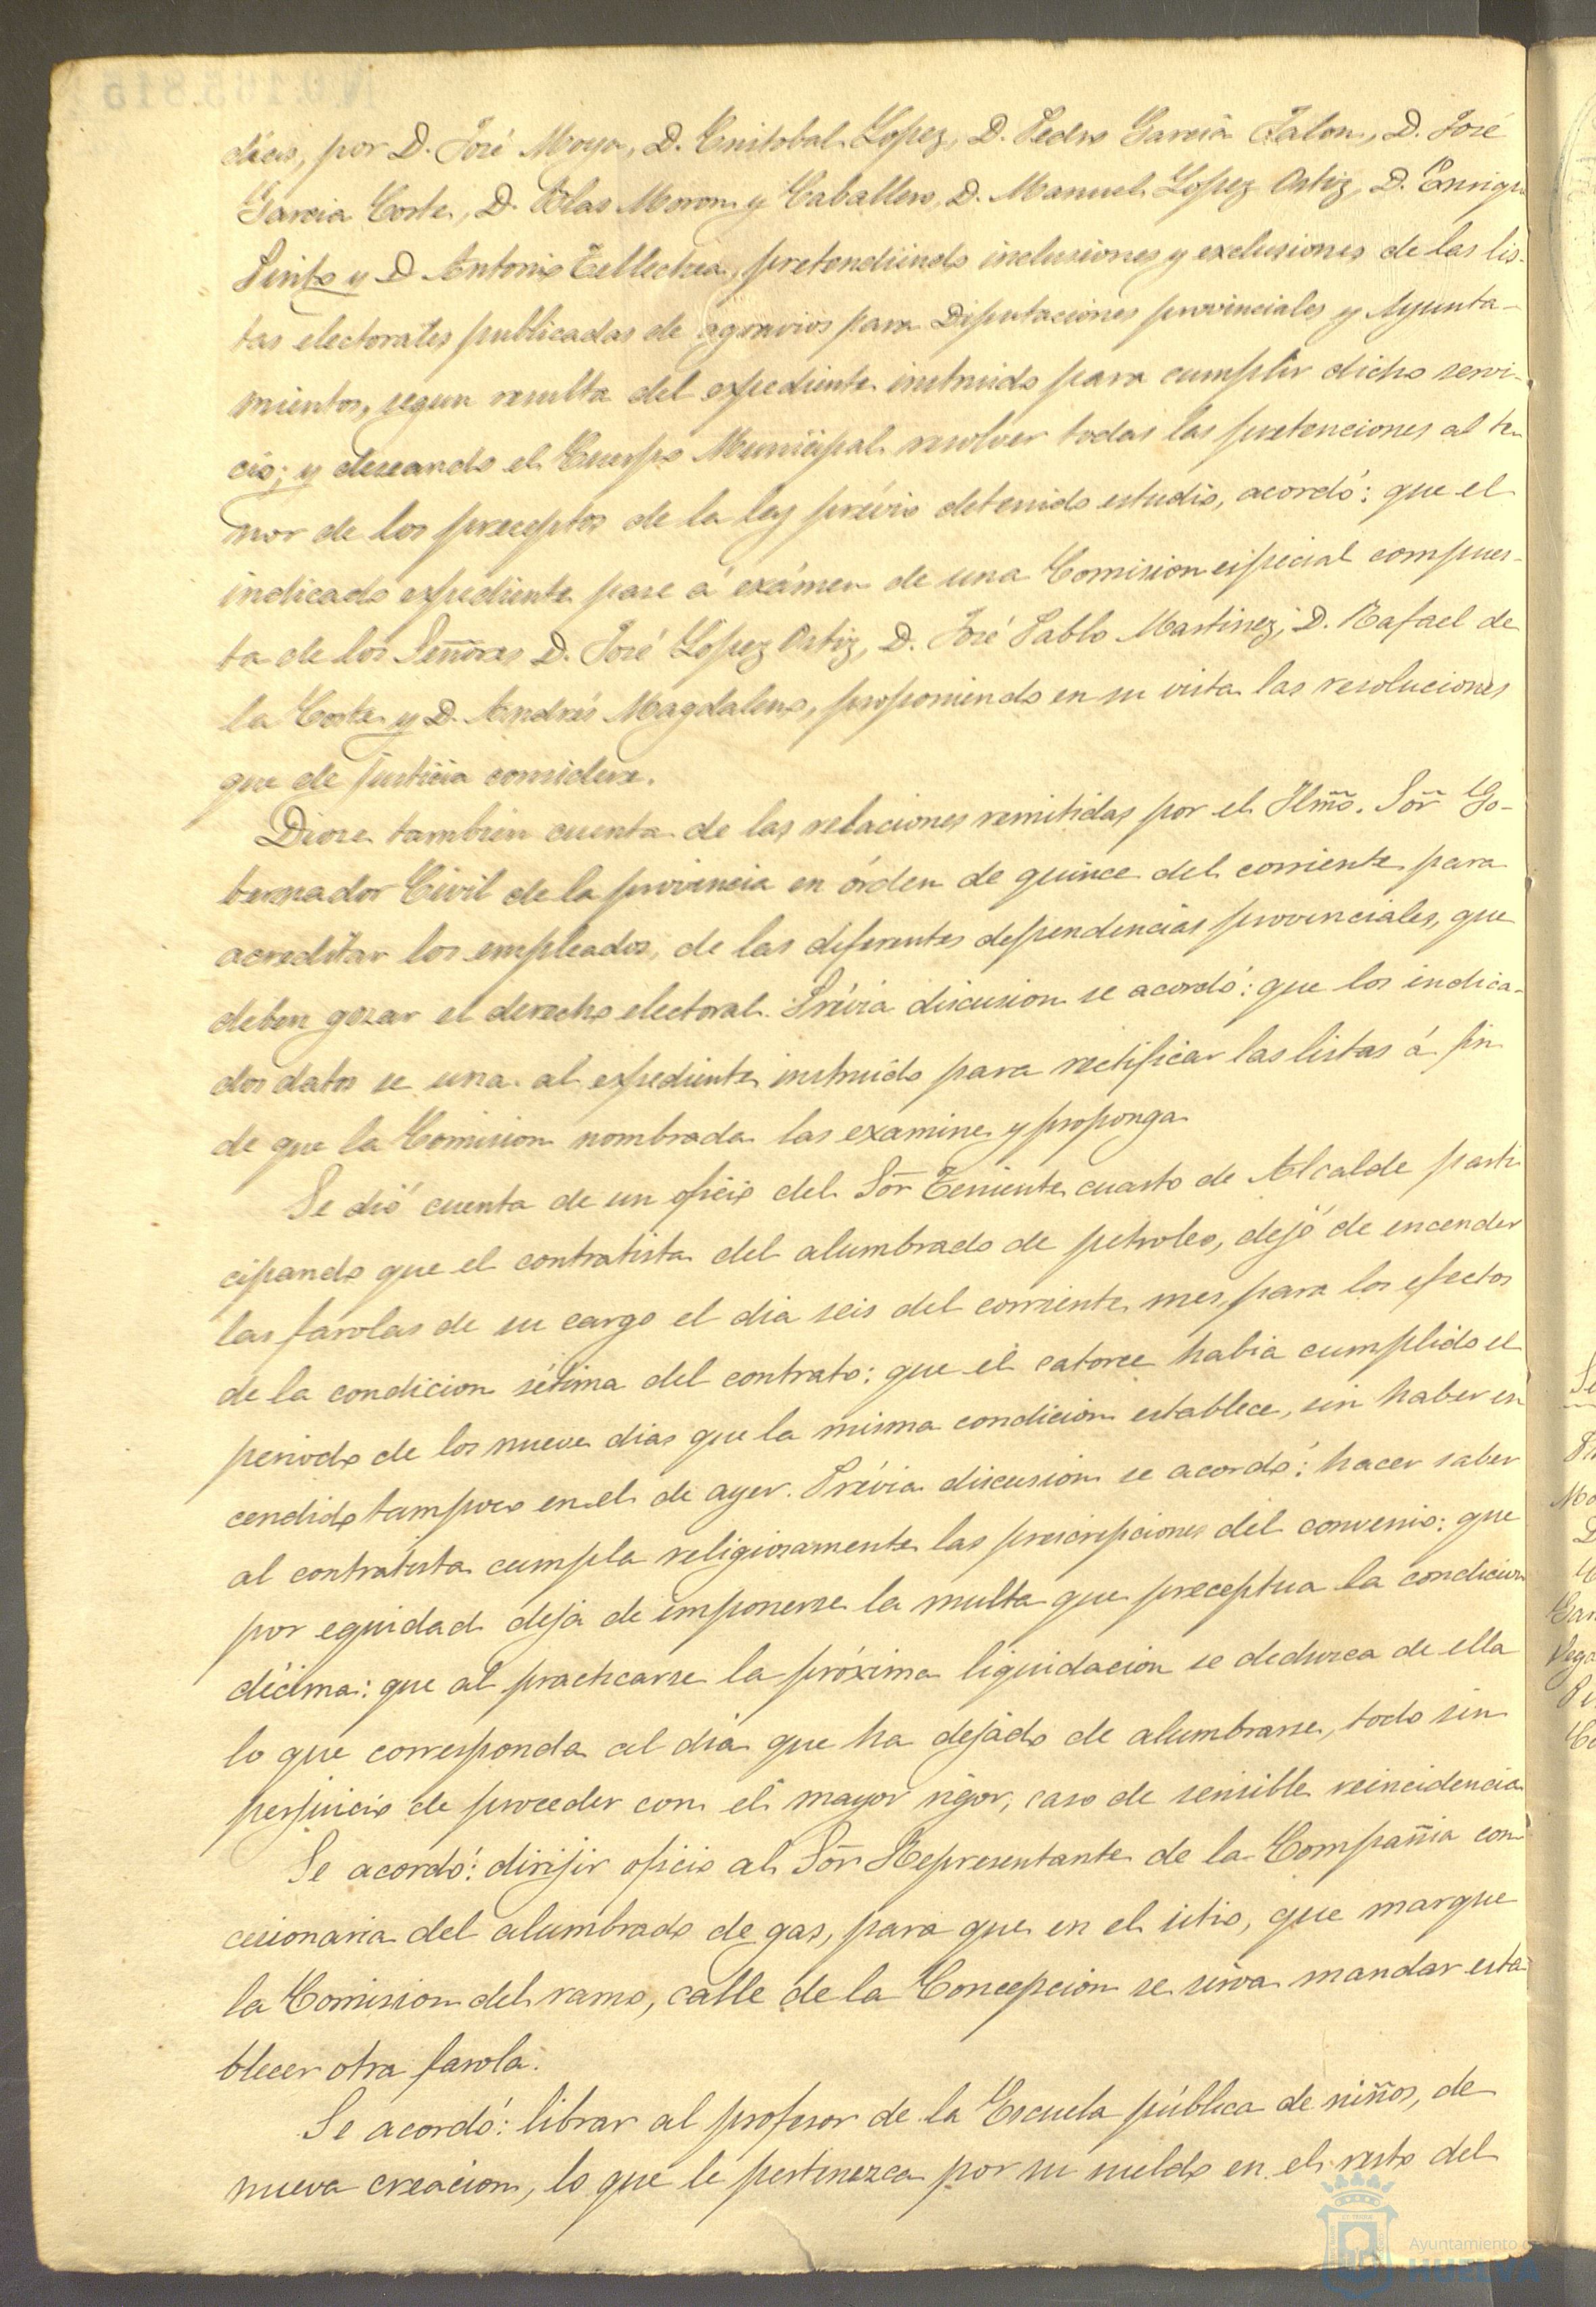 dicas, por D. José Moya, D. Cristobal Lopez, D. Pedro Garcia Jalon, D. José
Garcia Corte, D. Blas Moron y Caballero, D. Manuel Lopez Ortiz, D. Enrique
Pinto y D. Antonio Tellechea, pretendiendo inclusiones y exclusiones de las lis-
tas electorales publicadas de agravios para Diputaciones provinciales y Ayunta-
mientos, segun resulta del expediente instruido para cumplir dicho servi-
cio; y deseando el Cuerpo Municipal resolver todas las pretenciones al te-
nor de los preceptos de la ley prévio detenido estudio, acordó: que el
indicado expediente pase á exámen de una Comision especial compues-
ta de los Señores D. José Lopez Ortiz, D. José Pablo Martinez, D. Rafael de
la Corte y D. Andrés Magdaleno, proponiendo en su vista las resoluciones
que de justicia considere.
Diose tambien cuenta de las relaciones remitidas por el Ilmõ. Sõr Go-
bernador Civil de la provincia en órden de quince del corriente para
acreditar los empleados, de las diferentes dependencias provinciales, que
deben gozar el derecho electoral. Prévia discusion se acordó: que los indica-
dos datos se una al expediente instruido para rectificar las listas á fin
de que la Comision nombrada las examine y proponga
Se dió cuenta de un oficio del Sõr Teniente cuarto de Alcalde parti
cipando que el contratista del alumbrado de petroleo, dejó de encender
las farolas de su cargo el dia seis del corriente mes, para los efectos
de la condicion sétima del contrato: que el catorce habia cumplido el
periodo de los nueve dias que la misma condicion establece, sin haber en
cendido tampoco en el de ayer. Prévia discusion se acordó: hacer saber
al contratista cumpla religiosamente las prescripciones del convenio: que
por equidad deja de imponerse la multa que preceptua la condicion
décima: que al practicarse la próxima liquidacion se deduzca de ella
lo que corresponda al dia que ha dejado de alumbrarse, todo sin
perjuicio de proceder con el mayor rigor, caso de sensible reincidencia
Se acordó: dirijir oficio al Sõr Representante de la Compañia con
cesionaria del alumbrado de gas, para que en el sitio, que marque
la Comision del ramo, calle de la Concepcion se sirva mandar esta
blecer otra farola.
Se acordó: librar al profesor de la Escuela pública de niños, de
nueva creacion, lo que le pertenezca por su sueldo en el resto del
Ayuntamiento de
HUELVA